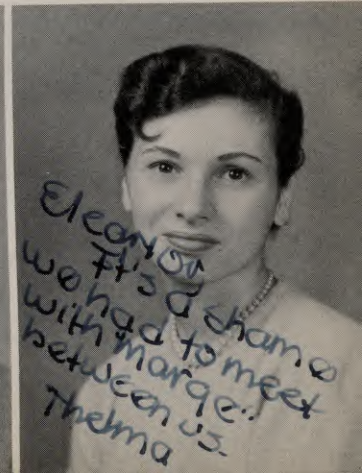 Eleanor
It's a shame
we had to meet
with "Marge"
between us.
Thelma